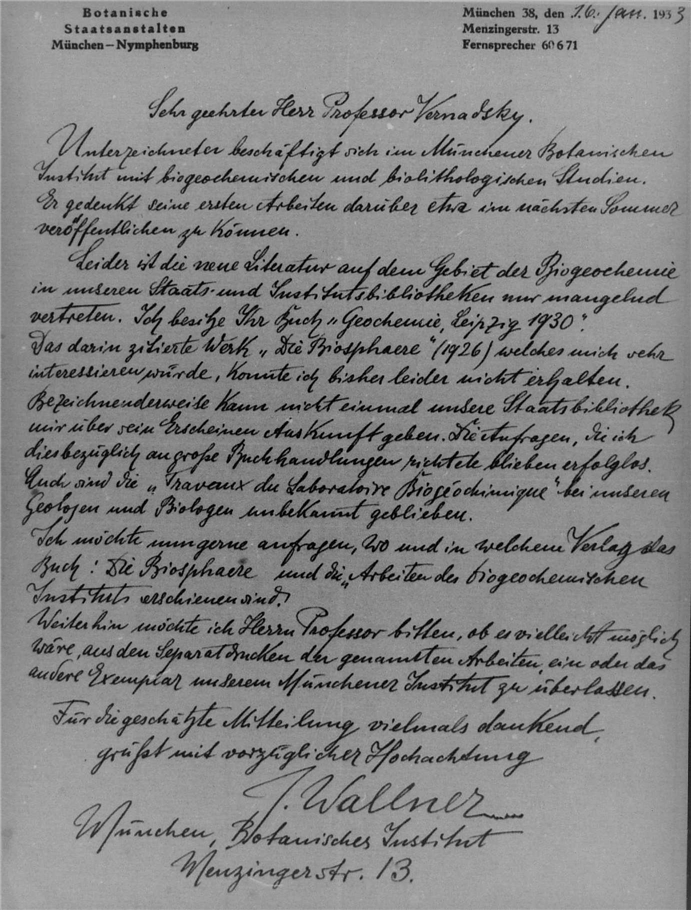 Botanische
Staatsanstalten
München – Nymphenburg
München 38, den 16. Jan. 1933
Menzingerstr. 13
Fernsprecher 60671
Sehr geehrter Herr Professor Vernadsky.
Unterzeichneter beschäftigt sich im Münchener Botanischen
Institut mit biogeochemischen und biolithologischen Studien.
Er gedenkt seine ersten Arbeiten darüber etwa im nächsten Sommer
veröffentlichen zu können.
Leider ist die neue Literatur auf dem Gebiet der Biogeochemie
in unseren Staats- und Institutsbibliotheken nur mangelnd
vertreten. Ich besitze Ihr Buch „Geochemie, Leipzig 1930".
Das darin zitierte Werk „Die Biosphaere" (1926) welches mich sehr
interessieren würde, konnte ich bisher leider nicht erhalten.
Bezeichnenderweise kann nicht einmal unsere Staatsbibliothek
mir über sein Erscheinen Auskunft geben. Die Anfragen, die ich
diesbezüglich an große Buchhandlungen richtete blieben erfolglos.
Auch sind die „Travaux du Laboratoire Biogéochimique" bei unseren
Geologen und Biologen unbekannt geblieben.
Ich möchte nun gerne anfragen, wo und in welchem Verlag das
Buch: Die Biosphaere und die „Arbeiten des biogeochemischen
Instituts erschienen sind!
Weiterhin möchte ich Herrn Professor bitten, ob es vielleicht möglich
wäre, aus den Separatdrucken der genannten Arbeiten, ein oder das
andere Exemplar unserem Münchener Institut zu überlassen.
Für die geschätzte Mitteilung vielmals dankend,
grüßt mit vorzüglicher Hochachtung
J. Wallner
München, Botanisches Institut
Menzingerstr. 13.